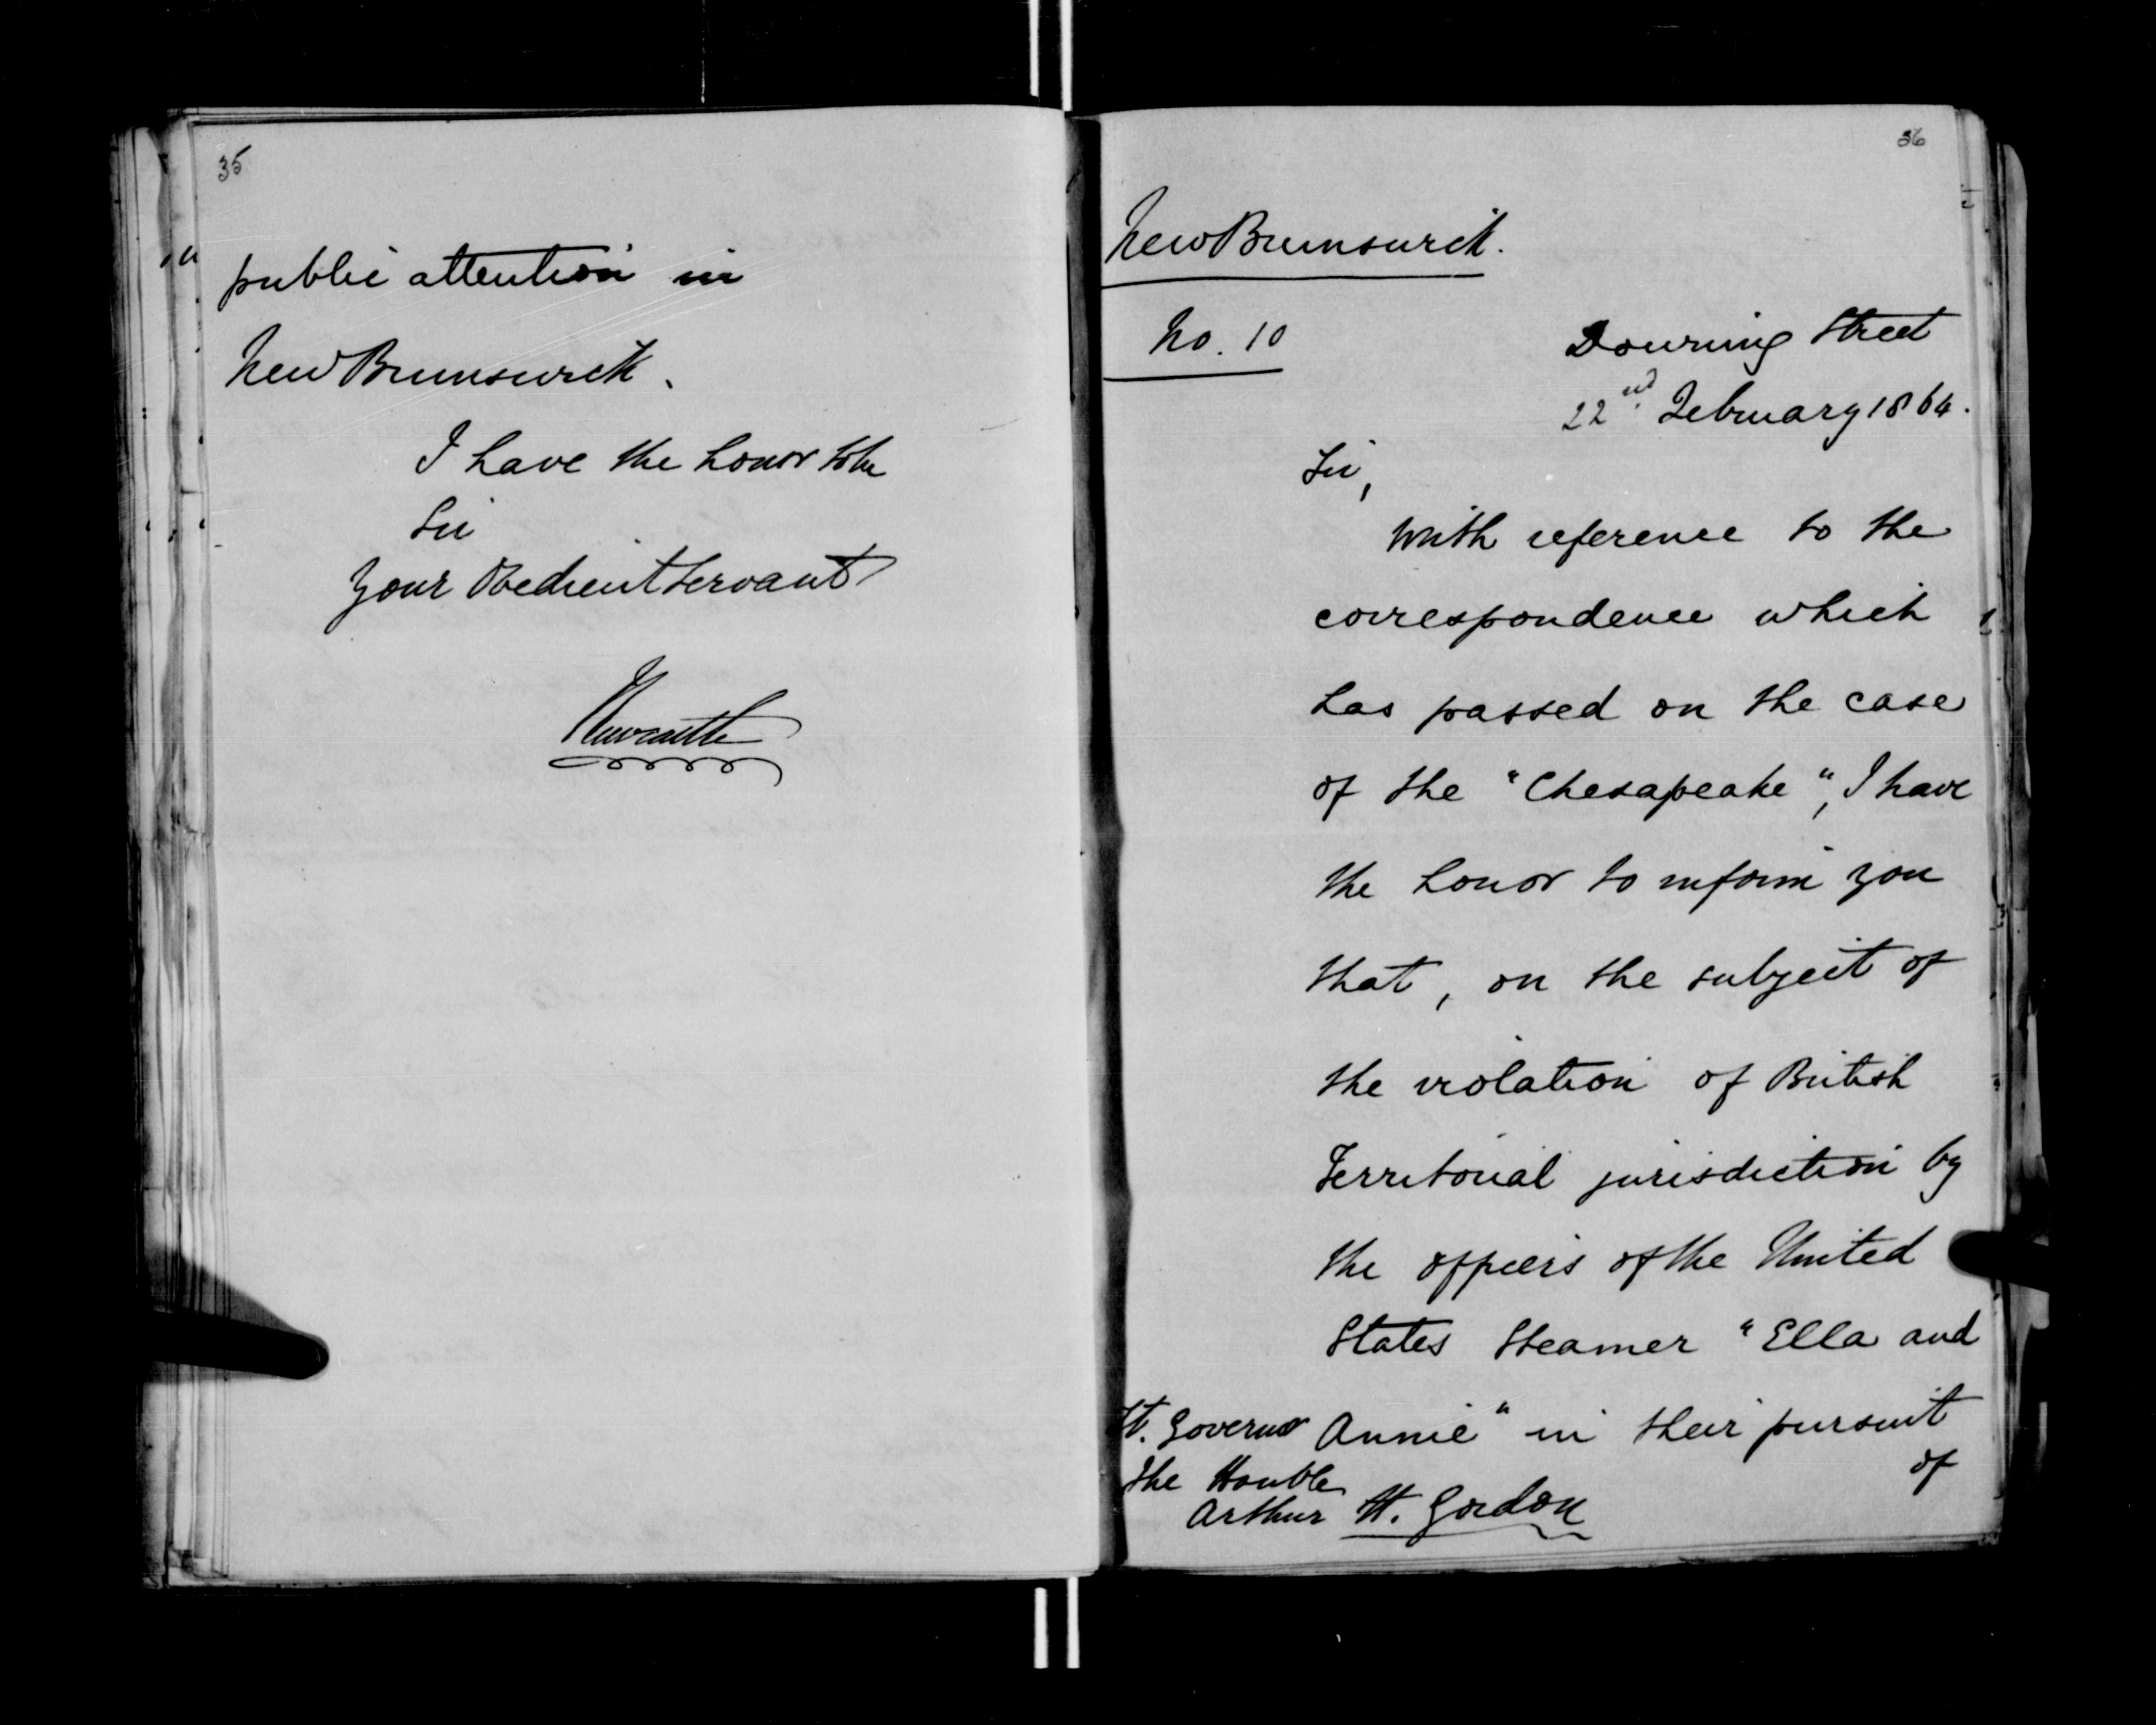 35
public attention in
New Brunswick.
I have the honor to be
Sir
Your Obedient Servant
Newcastle
36
New Brunswick.
No. 10
Downing Street
22nd February 1864.
Sir,
With reference to the
correspondence which
has passed on the case
of the "Chesapeake", I have
the honor to inform you
that, on the subject of
the violation of British
Territorial jurisdiction by
the officers of the United
States Steamer "Ella and
Annie" in their pursuit
of
Lt. Governor
The Honble
Arthur H. Gordon